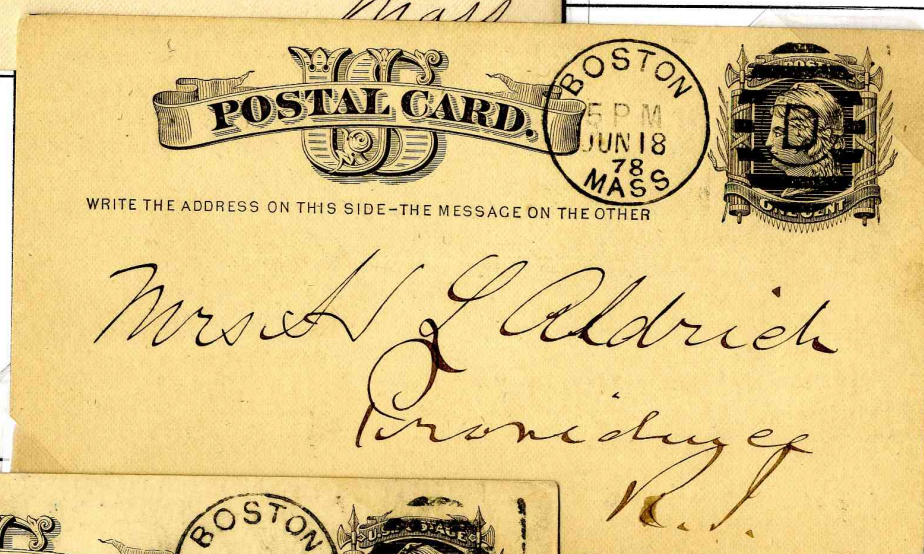 Mass
US
POSTAL CARD.
BOSTON
5 PM
JUN 18
78
MASS
D
ONE CENT
WRITE THE ADDRESS ON THIS SIDE-THE MESSAGE ON THE OTHER
Mrs L Aldrich
Providence
R.I.
BOSTON
U.S. POSTAGE